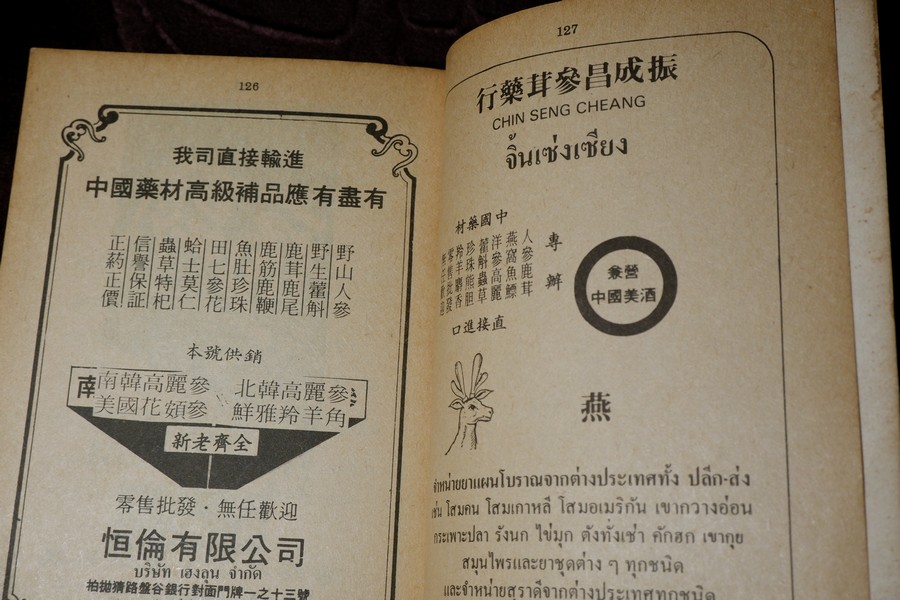 126
我司直接輸進
中國藥材高級補品應有盡有
野山人參
野生藿斛
鹿茸鹿尾
鹿筋鹿鞭
魚肚珍珠
田七參花
蛤士莫仁
蟲草特杞
信譽保証
正葯正價
本號供銷
南韓高麗參 北韓高麗參
美國花頎參 鮮雅羚羊角
新老齊全
零售批發·無任歡迎
恒倫有限公司
บริษัท เฮงลุน จำกัด
柏拋猜路盤谷銀行對面門牌一之十三號
127
振成昌參茸藥行
CHIN SENG CHEANG
จิ้นเซ่งเซียง
中國藥材
專辦
人參鹿茸
燕窩魚鰾
洋參高麗
藿斛蟲草
珍珠熊胆
羚羊麝香
零售批發
直接進口
兼營
中國美酒
燕
จำหน่ายยาแผนโบราณจากต่างประเทศทั้ง ปลีก-ส่ง
เช่น โสมคน โสมเกาหลี โสมอเมริกัน เขากวางอ่อน
กระเพาะปลา รังนก ไข่มุก ตังทั่งเช่า คักฮก เขากุย
สมุนไพรและยาชุดต่าง ๆ ทุกชนิด
และจำหน่ายสุราดีจากต่างประเทศทุกชนิด